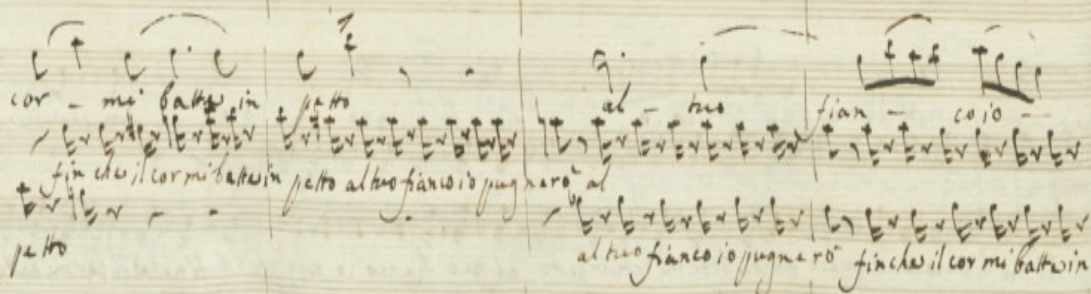 cor - mi batte in petto al - tuo fian - co io -
fin che il cor mi batte in petto al tuo fianco io pugnerò al
petto al tuo fianco io pugnerò finche il cor mi batte in